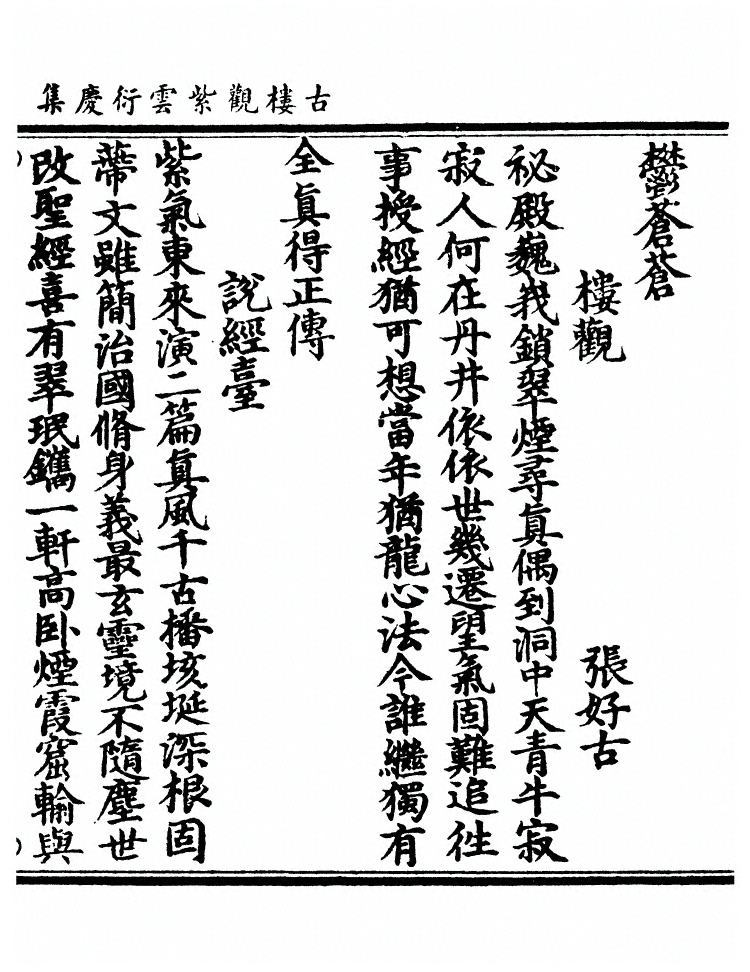 古樓觀紫雲衍慶集
鬱蒼蒼
樓觀
張好古
祕殿巍峩鎖翠煙尋真偶到洞中天青牛寂
寂人何在丹井依依世幾遷望氣固難追徃
事授經猶可想當年猶龍心法今誰繼獨有
全眞得正傳
說經臺
紫氣東來演二篇眞風千古播垓埏深根固
蔕文雖簡治國脩身義最玄靈境不隨塵世
改聖經喜有翠珉鐫一軒高卧煙霞窟輪與